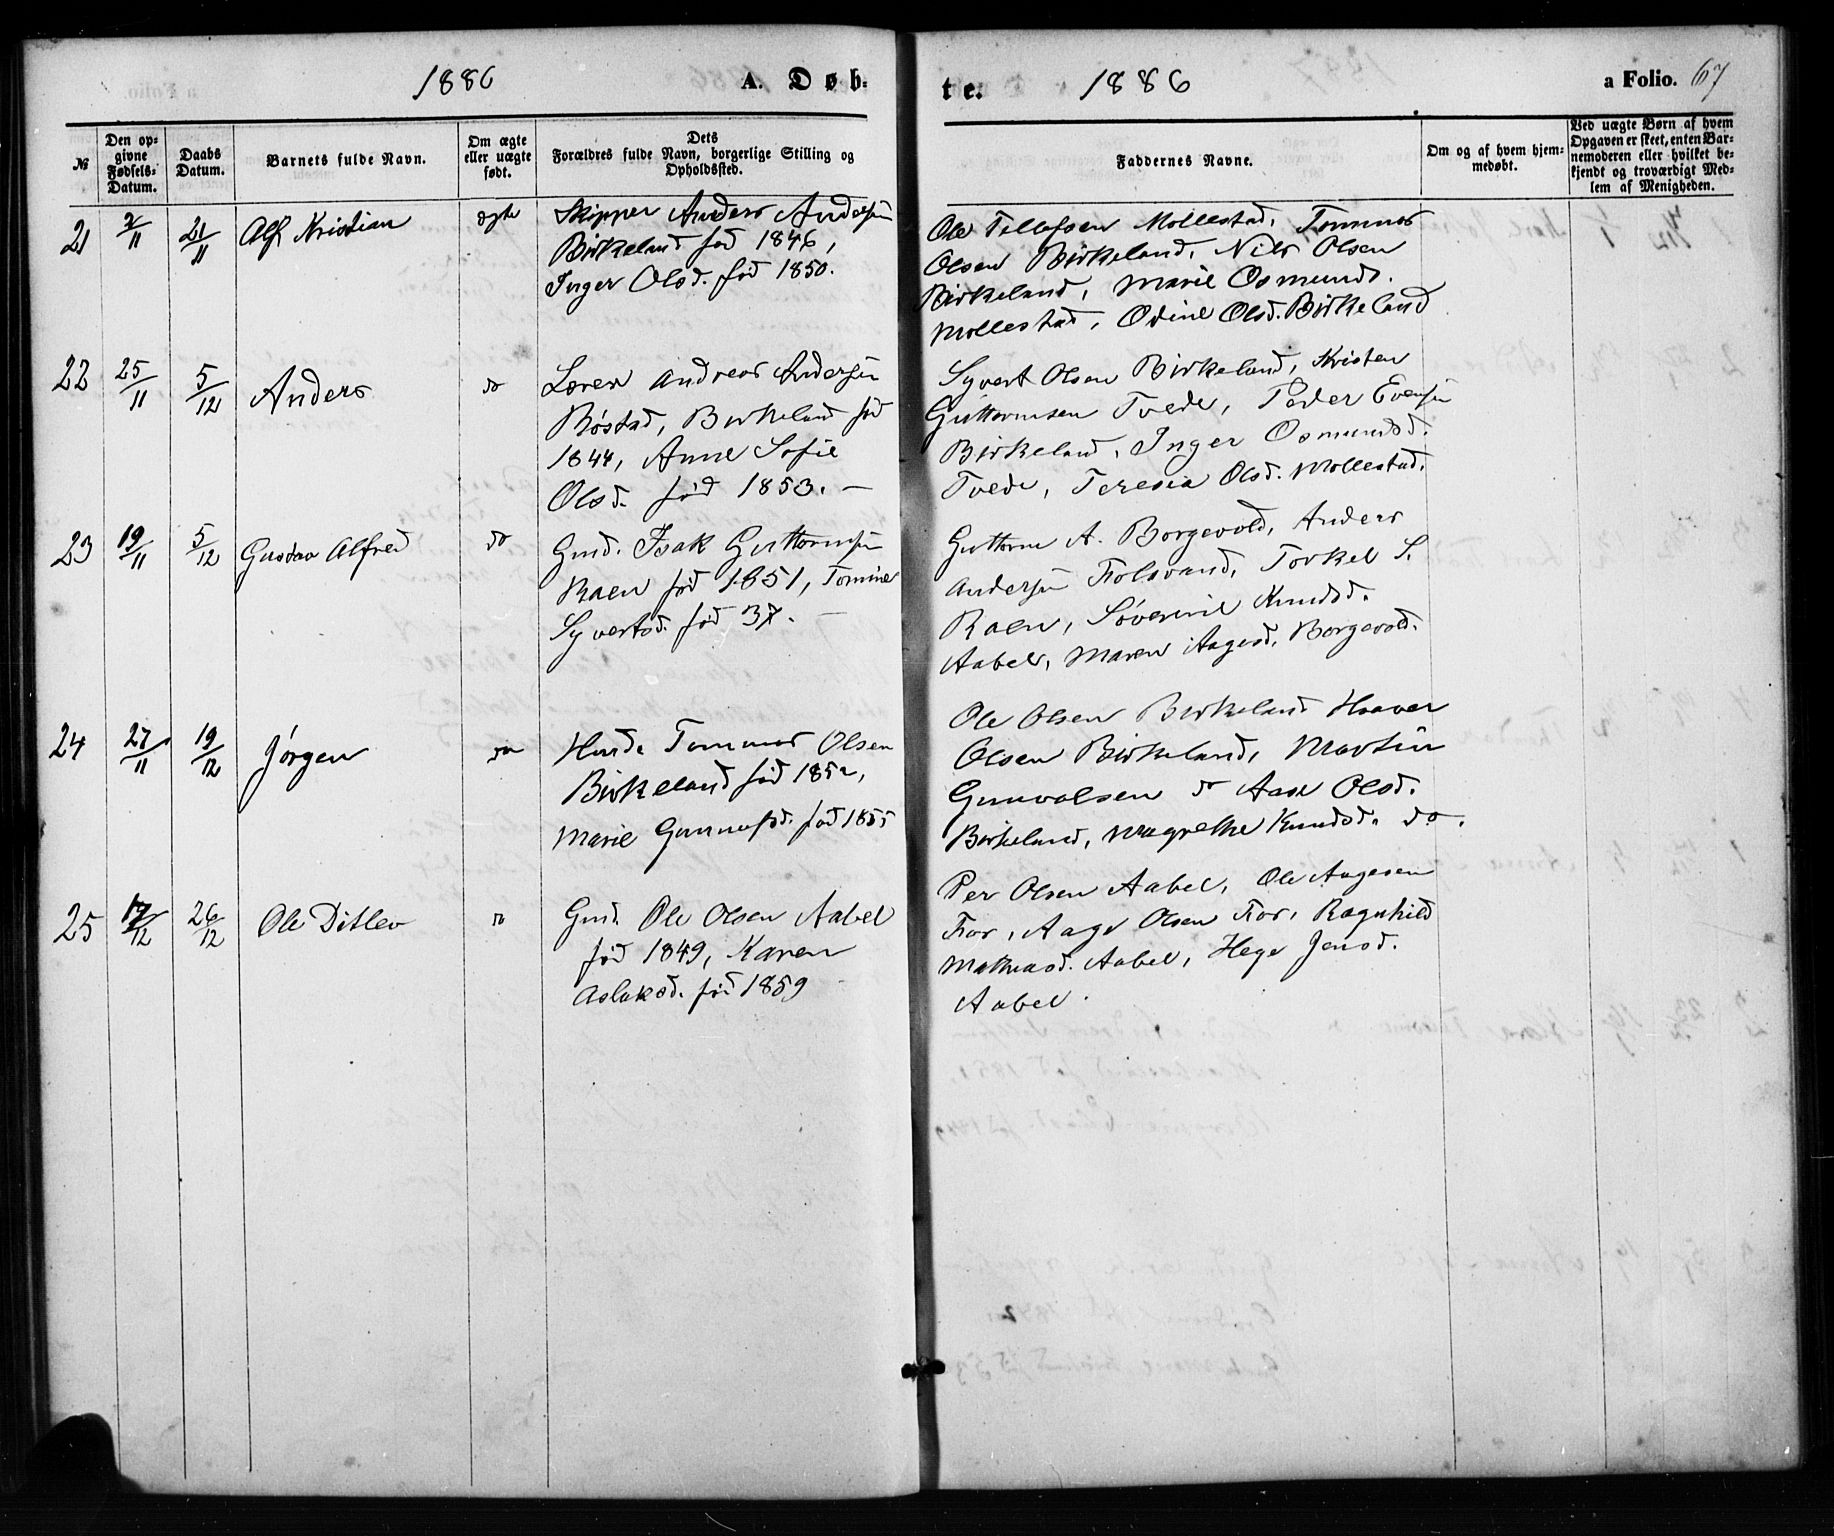 1886 A. Døb-
te. 1886 a Folio. 67
№
Den op-
givne
Fødsels-
Datum.
Daabs
Datum.
Barnets fulde Navn.
Om ægte
eller uægte
født.
Dets
Forældres fulde Navn, borgerlige Stilling og
Opholdssted.
Faddernes Navne.
Om og af hvem hjem-
medøbt.
Ved uægte Børn af hvem
Opgaven er skeet, enten Bar-
nemoderen eller hvilket be-
kjendt og troværdigt Med-
lem af Menigheden.
21 2/11 21/11 Alf Kristian ægte
Skipper Anders Andersen
Birkeland fød 1846,
Inger Olsd. fød 1850.
Ole Tellefsen Mollestad, Tommas
Olsen Birkeland, Nils Olsen
Birkeland, Marie Osmunds.
Mollestad, Odine Olsd. Birkeland
22 25/11 5/12 Anders do
Lærer Andreas Andersen
Bøstad, Birkeland fød
1844, Anne Sofie
Olsd. fød 1853. —
Syvert Olsen Birkeland, Kristen
Guttormsen Tvede, Peder Evensen
Birkeland, Inger Osmundsd.
Tvede, Teresia Olsd. Mollestad.
23 19/11 5/12 Gustav Alfred do
Gmd. Isak Guttormsen
Raen fød 1851, Tomine
Syvertsd. fød 37. —
Guttorm A. Borgevold, Anders
Andersen Folsvand, Torkel S.
Raen, Søverine Knudsd.
Aabel, Maren Aagesd. Borgevold.
24 27/11 19/12 Jørgen do
Husmd. Tommas Olsen
Birkeland fød 1852,
Marie Gunnufsd. fød 1855
Ole Olsen Birkeland Haaver
Olsen Birkeland, Martin
Gunvalsen do Aase Olsd.
Birkeland, Magrethe Knudsd. do.
25 17/12 26/12 Ole Ditlev do
Gmd. Ole Olsen Aabel
fød 1849, Karen
Aslaksd. fød 1859
Per Olsen Aabel, Ole Aagesen
Fror, Aage Olsen Fror, Ragnhild
Mathiasd. Aabel, Hege Jensd.
Aabel.